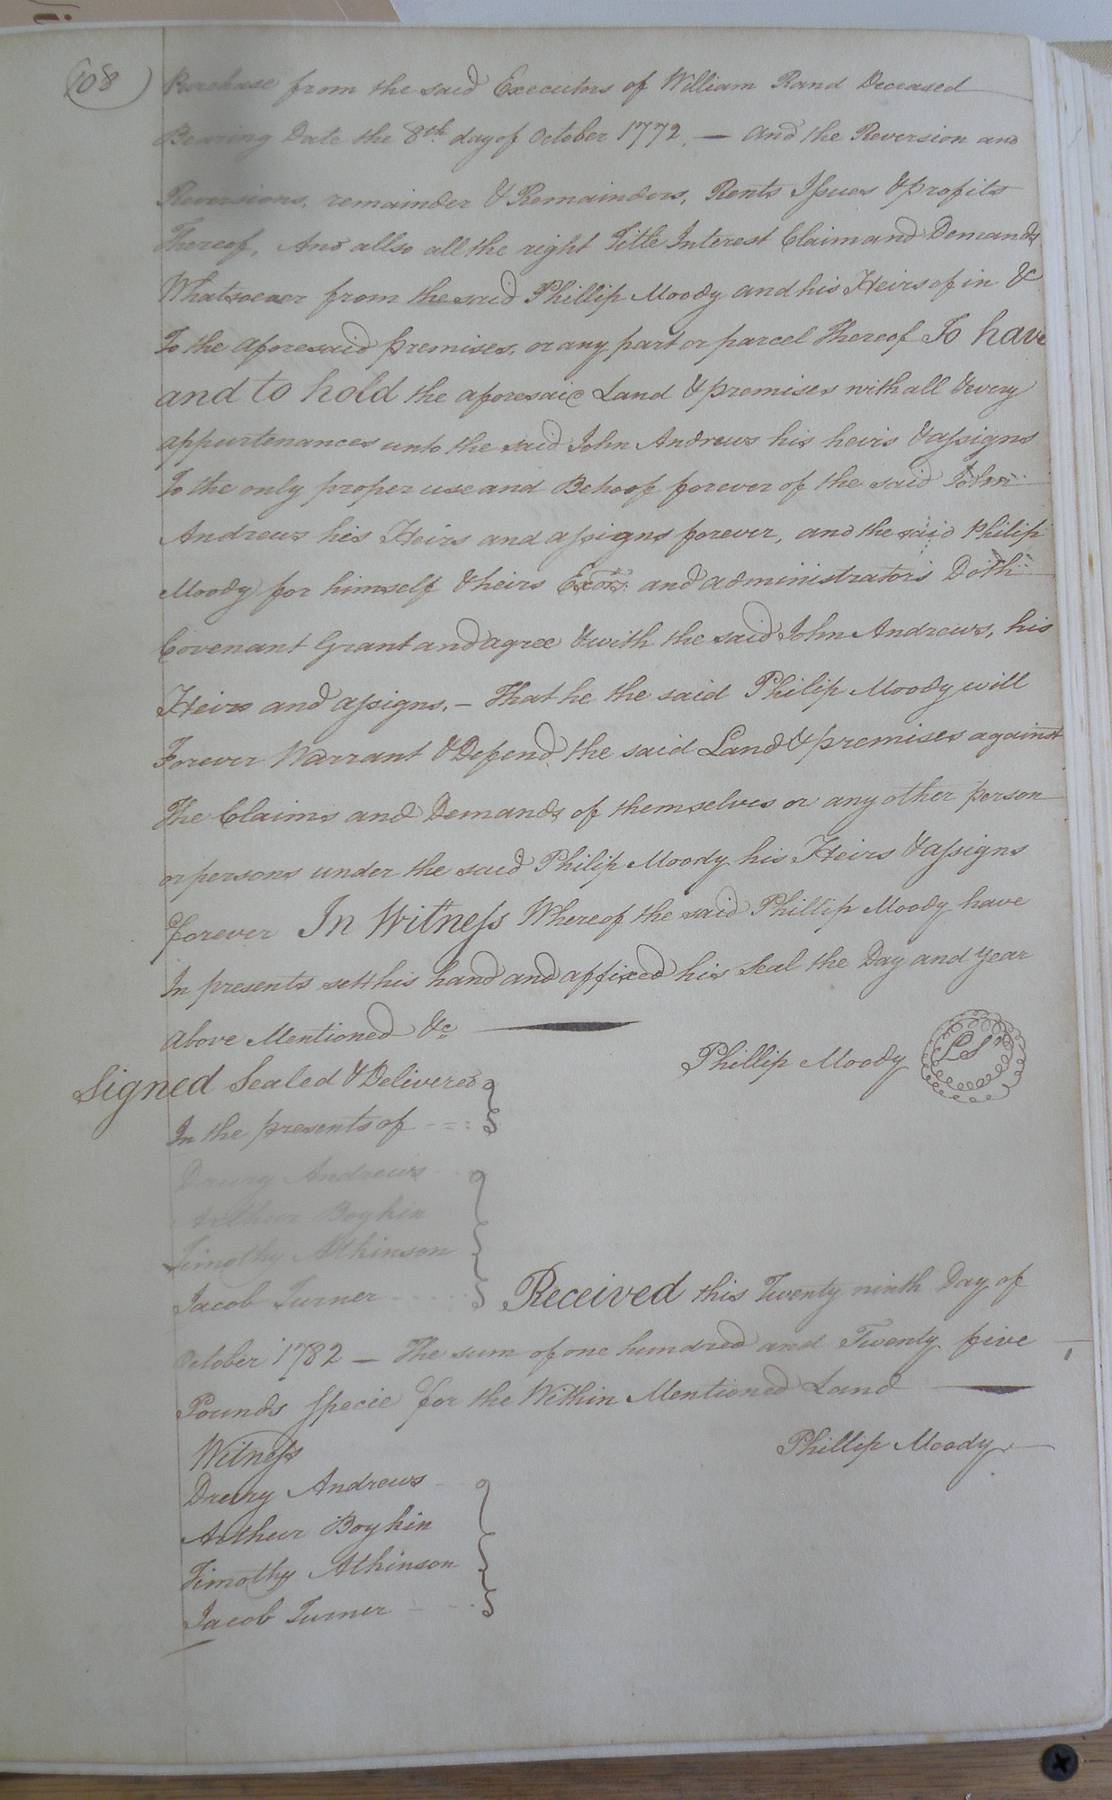 108
Purchase from the said Executors of William Rand Deceased
Bearing Date the 8th day of October 1772, — And the Reversion and
Reversions, remainder & Remainders, Rents Issues & profits
Thereof, And allso all the right Title Interest Claim and Demands
Whatsoever from the said Phillip Moody and his Heirs of in &
To the aforesaid premises, or any part or parcel Thereof To have
and to hold the aforesaid Land & premises with all & every
appurtenances unto the said John Andrews his heirs & assigns
To the only proper use and Behoof forever of the said John
Andrews his Heirs and assigns forever, and the said Philip
Moody for himself & heirs Exors. and administrators Doth
Covenant Grant and agree & with the said John Andrews, his
Heirs and assigns, — That he the said Philip Moody will
Forever Warrant & Defend the said Land & premises against
The Claims and Demands of themselves or any other person
or persons under the said Philip Moody his Heirs & assigns
forever In Witness Whereof the said Phillip Moody have
In presents sett his hand and affixed his Seal the Day and year
above Mentioned &c
Phillip Moody LS
Signed Sealed & Delivered
In the presents of
Drury Andrews
Arthur Boykin
Timothy Atkinson
Jacob Turner
Received this Twenty ninth Day of
October 1782 — The sum of one hundred and Twenty five
Pounds Specie for the Within Mentioned Land
Phillip Moody
Witness
Drury Andrews
Arthur Boykin
Timothy Atkinson
Jacob Turner